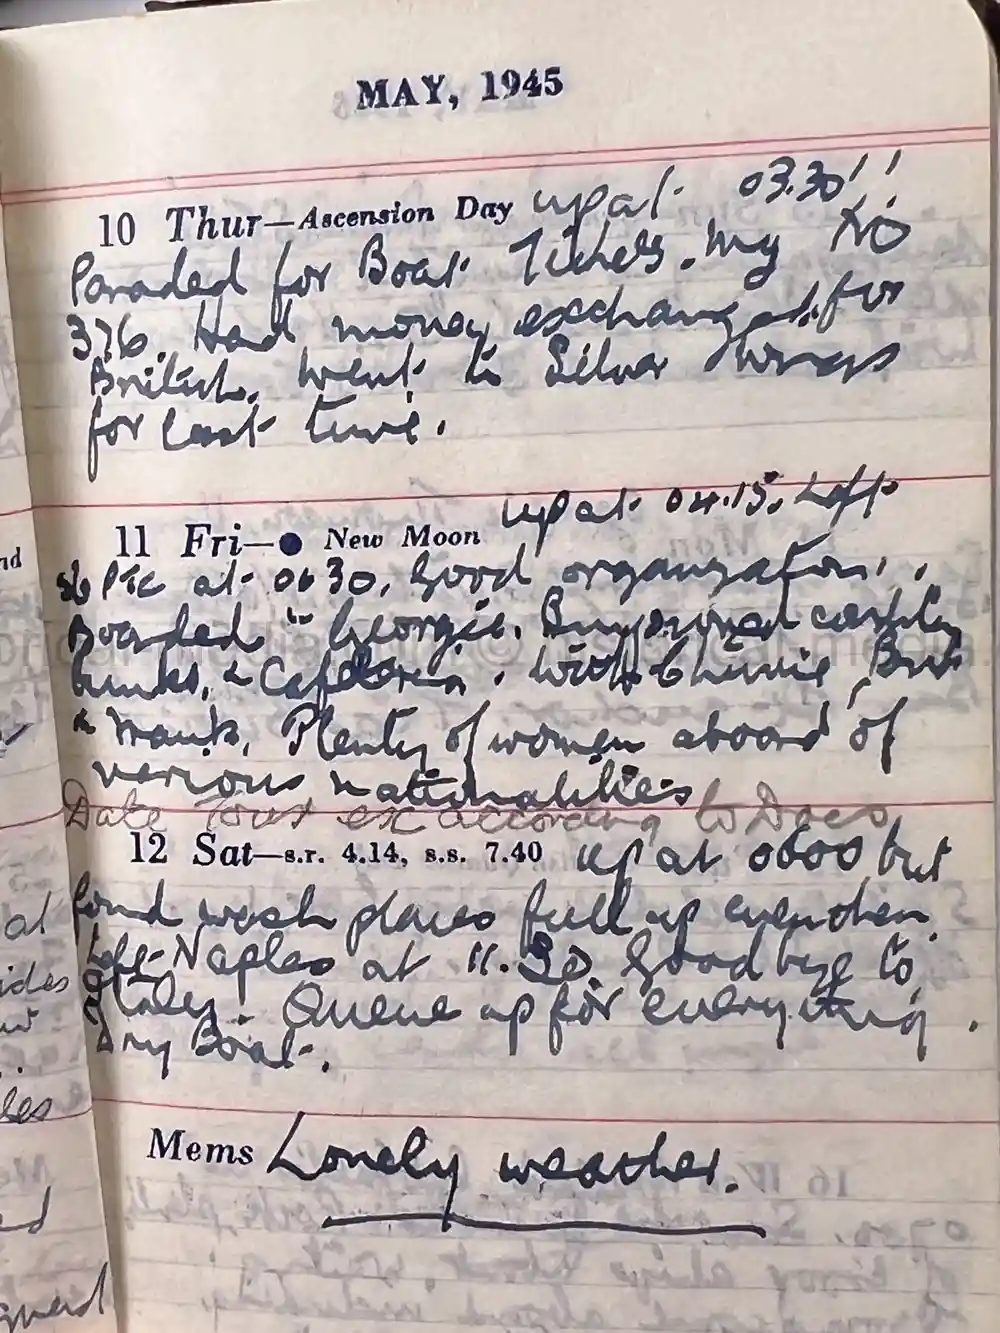 MAY, 1945
10 Thur—Ascension Day up at 03.30!!
Paraded for Boat Tickets. My No
376. Had money exchanged for
British. Went to Silver Wings
for last time.
11 Fri—● New Moon up at 04.15. Left
56 PTC at 0630. Good organization.
Boarded "Georgic. Improved
bunks, & Cafeteria. With
& Mank. Plenty of women aboard of
various nationalities
Date ex according to Docs
12 Sat—s.r. 4.14, s.s. 7.40 up at 0600 but
found wash places full up even then.
Left Naples at 11.30. Good bye to
Italy! Queue up for everything.
Dry Boat.
Mems Lonely weather.